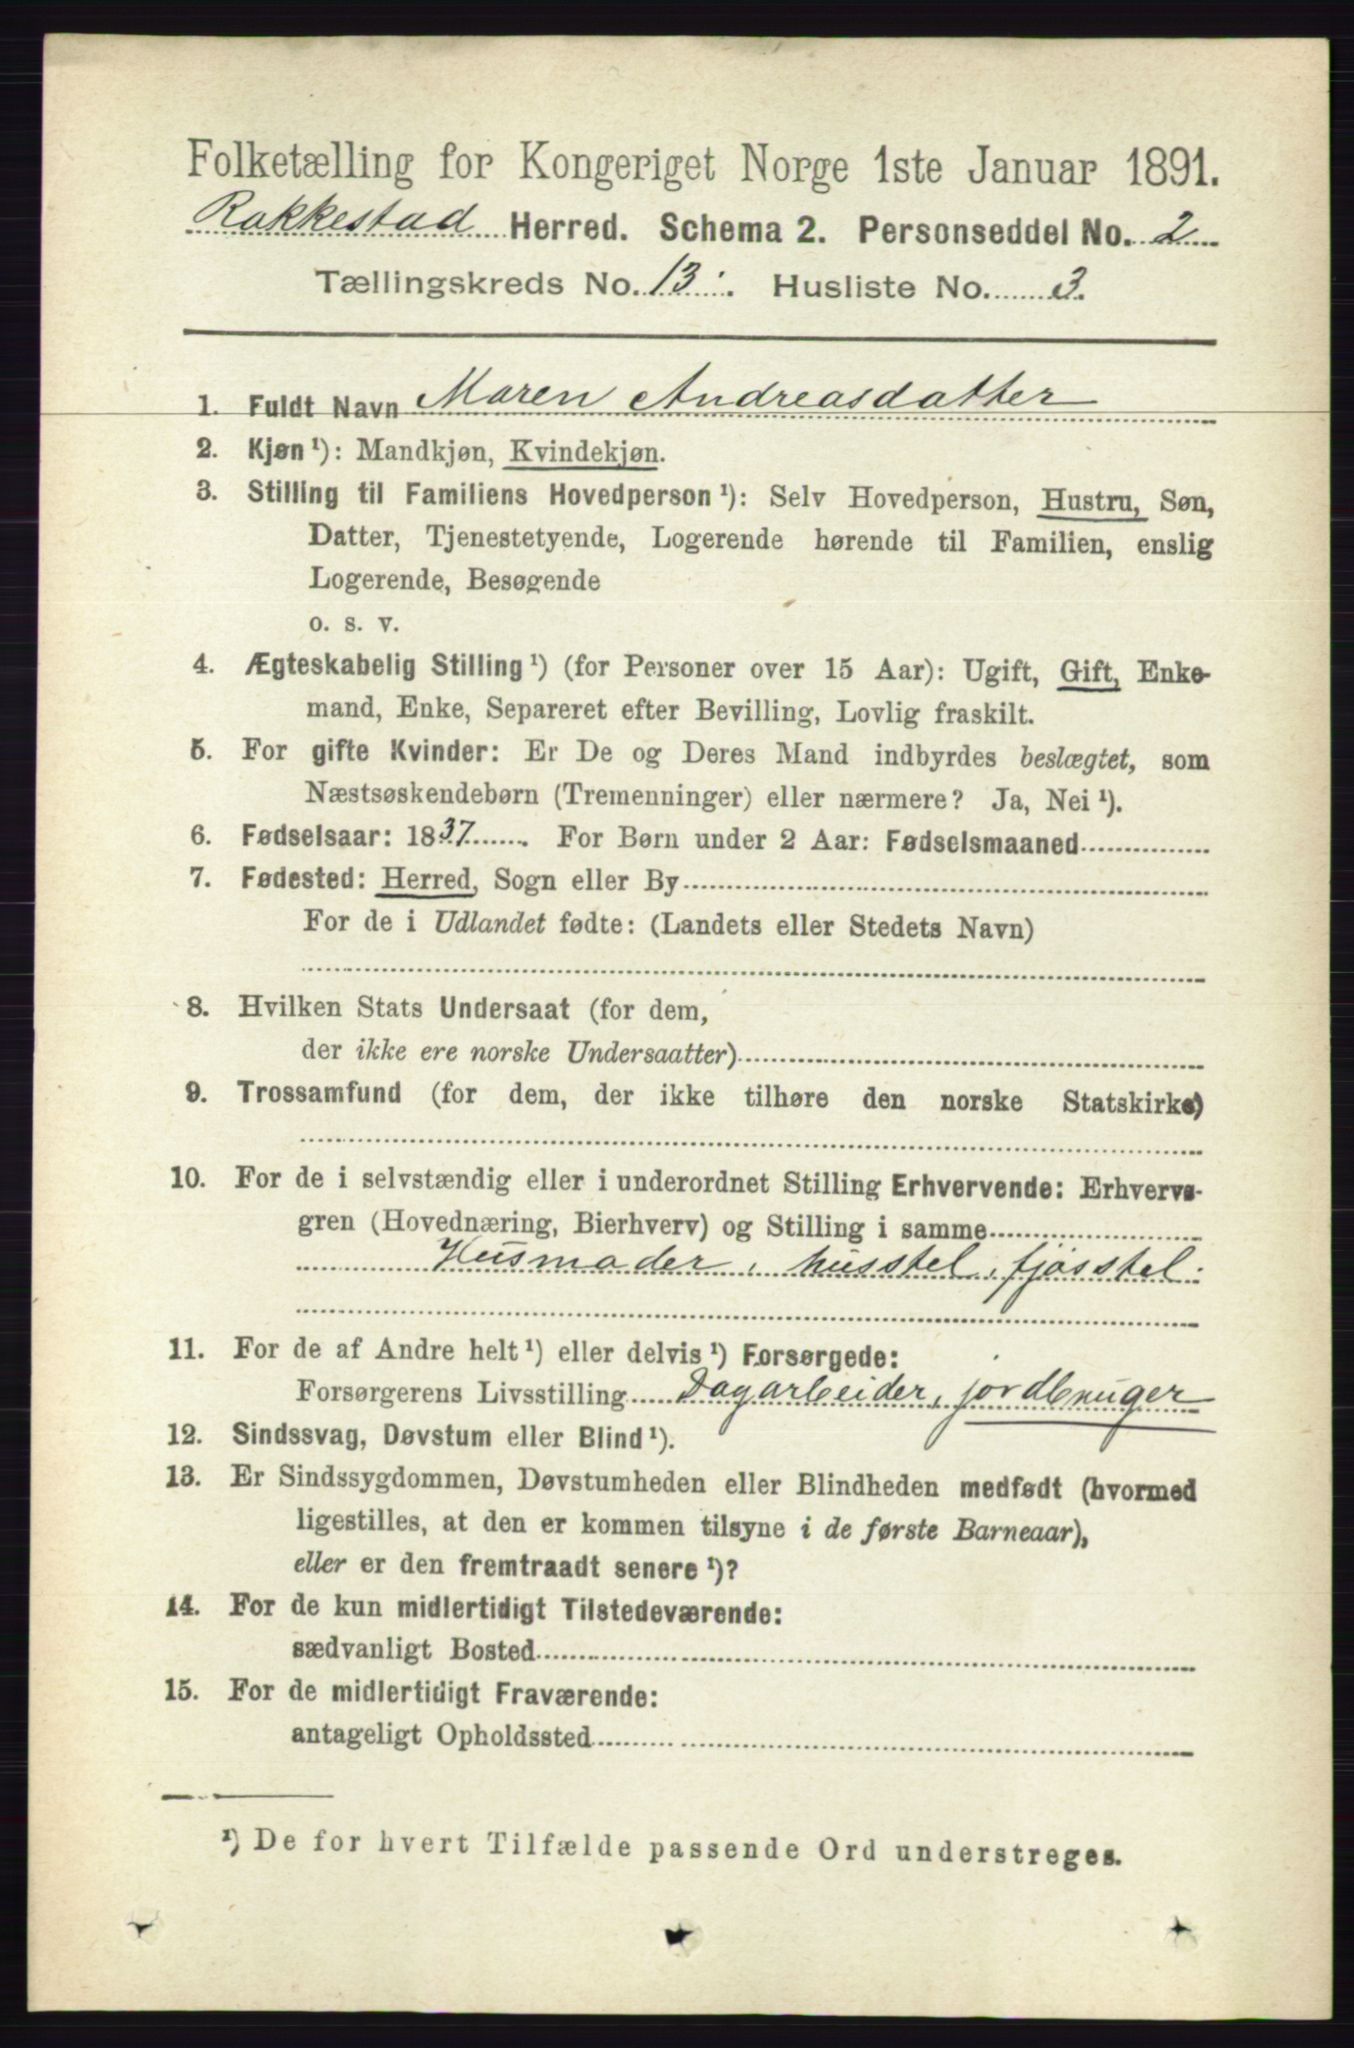 Folketælling for Kongeriget Norge 1ste Januar 1891.
Rakkestad Herred. Schema 2. Personseddel No. 2
Tællingskreds No. 13. Husliste No. 3.
1. Fuldt Navn Maren Andreasdatter
2. Kjøn¹): Mandkjøn, Kvindekjøn.
3. Stilling til Familiens Hovedperson¹): Selv Hovedperson, Hustru, Søn,
Datter, Tjenestetyende, Logerende hørende til Familien, enslig
Logerende, Besøgende
o. s. v.
4. Ægteskabelig Stilling¹) (for Personer over 15 Aar): Ugift, Gift, Enke-
mand, Enke, Separeret efter Bevilling, Lovlig fraskilt.
5. For gifte Kvinder: Er De og Deres Mand indbyrdes beslægtet, som
Næstsøskendebørn (Tremenninger) eller nærmere? Ja, Nei¹).
6. Fødselsaar: 1837. For Børn under 2 Aar: Fødselsmaaned
7. Fødested: Herred, Sogn eller By
For de i Udlandet fødte: (Landets eller Stedets Navn)
8. Hvilken Stats Undersaat (for dem,
der ikke ere norske Undersaatter)
9. Trossamfund (for dem, der ikke tilhøre den norske Statskirke)
10. For de i selvstændig eller i underordnet Stilling Erhvervende: Erhvervs-
gren (Hovednæring, Bierhverv) og Stilling i samme
Husmoder, husstel, fjøsstel.
11. For de af Andre helt¹) eller delvis¹) Forsørgede:
Forsørgerens Livsstilling Dagarbeider, jordbruger
12. Sindssvag, Døvstum eller Blind¹).
13. Er Sindssygdommen, Døvstumheden eller Blindheden medfødt (hvormed
ligestilles, at den er kommen tilsyne i de første Barneaar),
eller er den fremtraadt senere¹)?
14. For de kun midlertidigt Tilstedeværende:
sædvanligt Bosted
15. For de midlertidigt Fraværende:
antageligt Opholdssted
¹) De for hvert Tilfælde passende Ord understreges.